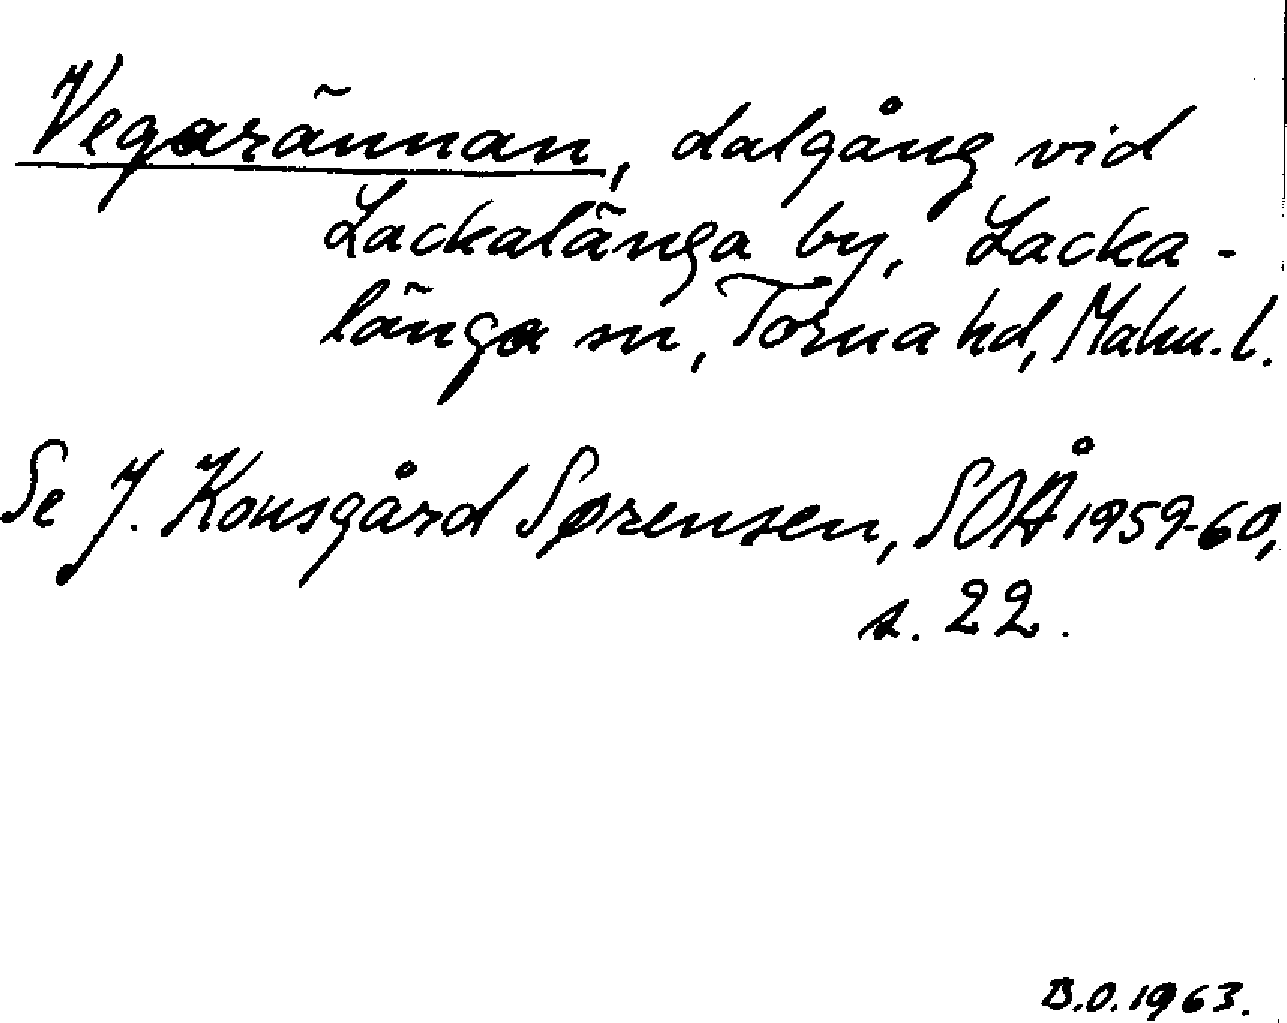 Vegarännan, dalgång vid
Lackalänga by, Lacka-
länga sn, Torna hd, Malm. l.
Se J. Kousgård Sørensen, SOÅ 1959-60,
s. 22.
B.O. 1963.